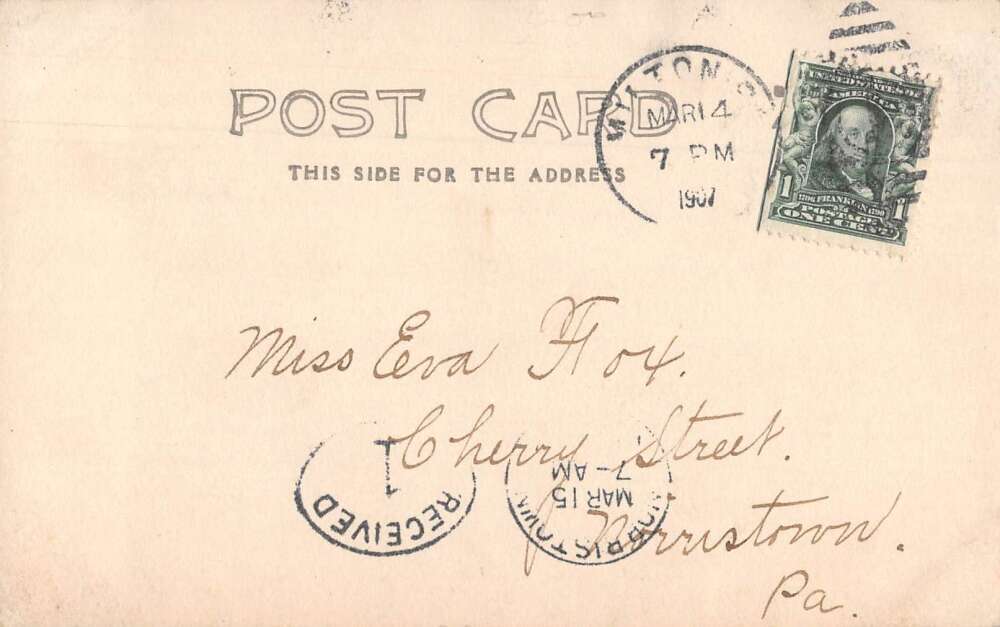 POST CARD
THIS SIDE FOR THE ADDRESS
MAR 14
7 PM
1907
UNITED STATES OF
AMERICA
1 1
1706 FRANKLIN 1790
POSTAGE
ONE CENT
Miss Eva Fox.
Cherry Street.
Norristown.
Pa.
RECEIVED
1
NORRISTOWN
MAR 15
7-AM